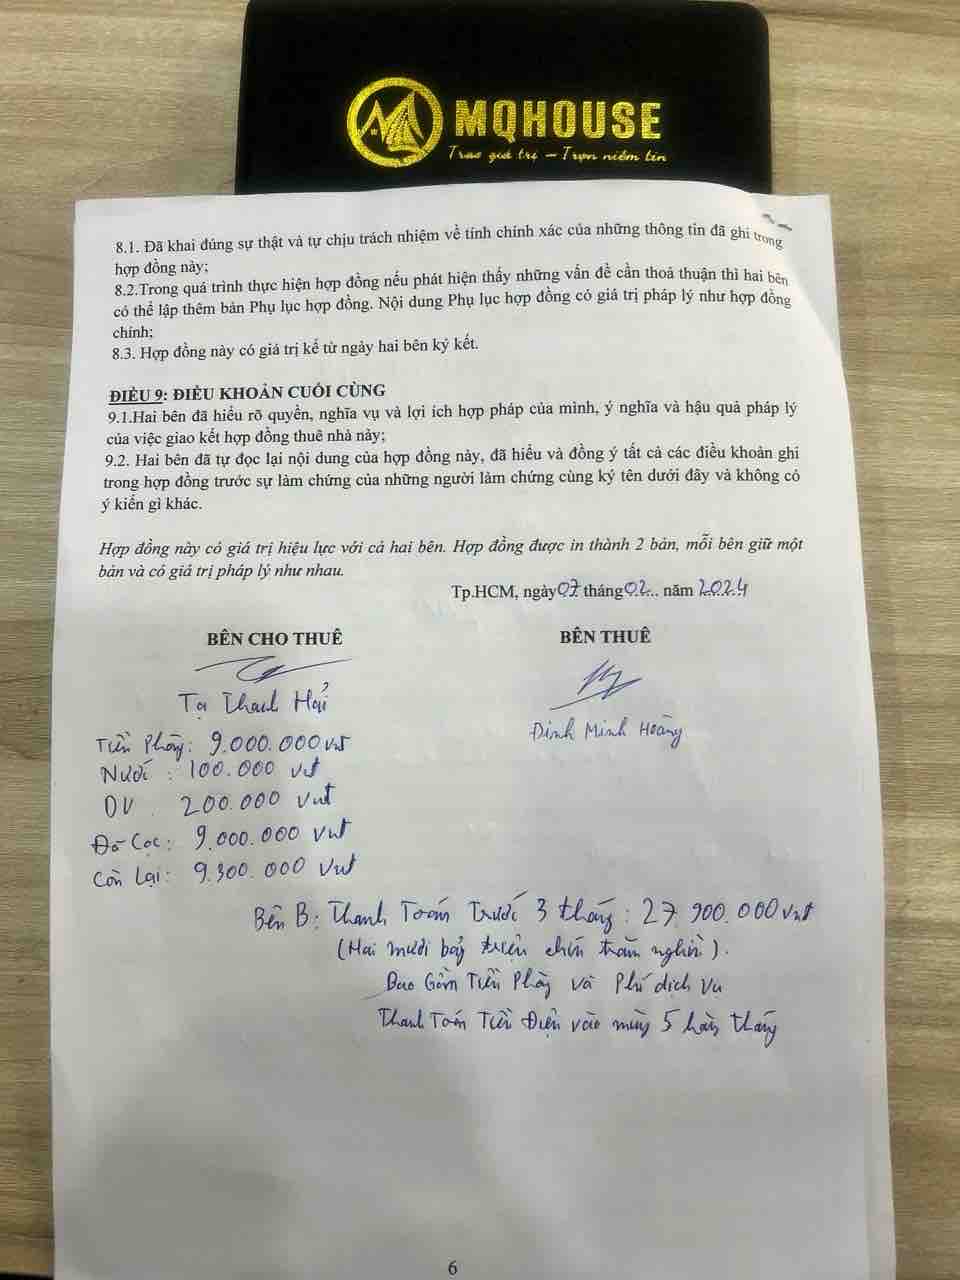 MQHOUSE
Trao giá trị – Trọn niềm tin
8.1. Đã khai đúng sự thật và tự chịu trách nhiệm về tính chính xác của những thông tin đã ghi trong
hợp đồng này;
8.2.Trong quá trình thực hiện hợp đồng nếu phát hiện thấy những vấn đề cần thoả thuận thì hai bên
có thể lập thêm bản Phụ lục hợp đồng. Nội dung Phụ lục hợp đồng có giá trị pháp lý như hợp đồng
chính;
8.3. Hợp đồng này có giá trị kể từ ngày hai bên ký kết.
ĐIỀU 9: ĐIỀU KHOẢN CUỐI CÙNG
9.1.Hai bên đã hiểu rõ quyền, nghĩa vụ và lợi ích hợp pháp của mình, ý nghĩa và hậu quả pháp lý
của việc giao kết hợp đồng thuê nhà này;
9.2. Hai bên đã tự đọc lại nội dung của hợp đồng này, đã hiểu và đồng ý tất cả các điều khoản ghi
trong hợp đồng trước sự làm chứng của những người làm chứng cùng ký tên dưới đây và không có
ý kiến gì khác.
Hợp đồng này có giá trị hiệu lực với cả hai bên. Hợp đồng được in thành 2 bản, mỗi bên giữ một
bản và có giá trị pháp lý như nhau.
Tp.HCM, ngày 07 tháng 02.. năm 2024
BÊN CHO THUÊ BÊN THUÊ
Tạ Thanh Hải
Đinh Minh Hoàng
Tiền Phòng: 9.000.000 vnđ
Nước : 100.000 vnđ
DV 200.000 vnđ
Đã Cọc: 9.000.000 vnđ
Còn Lại: 9.300.000 vnđ
Bên B: Thanh Toán Trước 3 tháng: 27.900.000 vnđ
(Hai mươi bảy triệu chín trăm nghìn).
Bao Gồm Tiền Phòng và Phí dịch vụ
Thanh Toán Tiền Điện vào mùng 5 hàng tháng
6